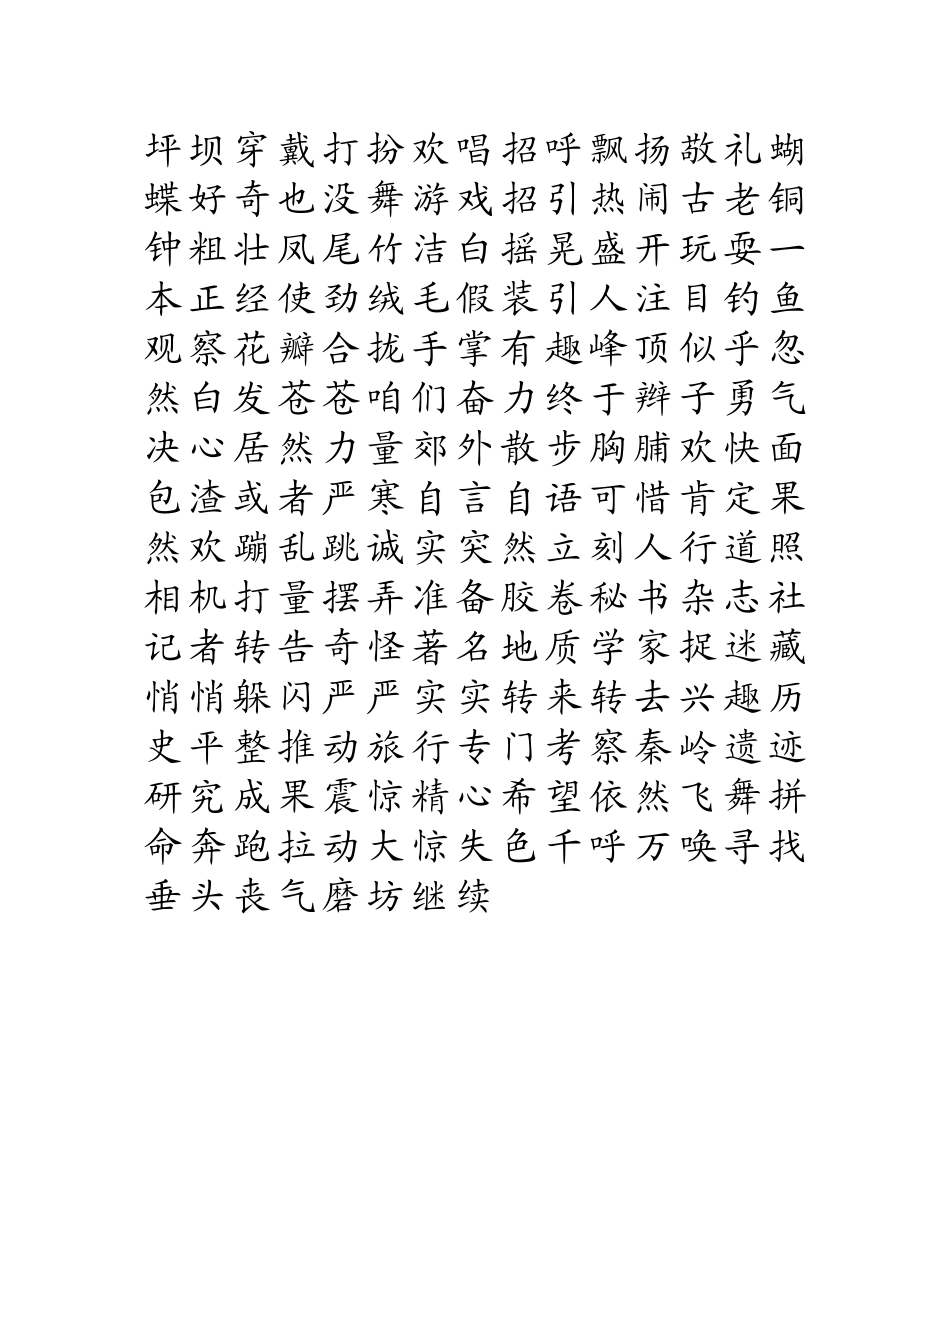 坪坝穿戴打扮欢唱招呼飘扬敬礼蝴
蝶好奇也没舞游戏招引热闹古老铜
钟粗壮凤尾竹洁白摇晃盛开玩耍一
本正经使劲绒毛假装引人注目钓鱼
观察花瓣合拢手掌有趣峰顶似乎忽
然白发苍苍咱们奋力终于辫子勇气
决心居然力量郊外散步胸脯欢快面
包渣或者严寒自言自语可惜肯定果
然欢蹦乱跳诚实突然立刻人行道照
相机打量摆弄准备胶卷秘书杂志社
记者转告奇怪著名地质学家捉迷藏
悄悄躲闪严严实实转来转去兴趣历
史平整推动旅行专门考察秦岭遗迹
研究成果震惊精心希望依然飞舞拼
命奔跑拉动大惊失色千呼万唤寻找
垂头丧气磨坊继续